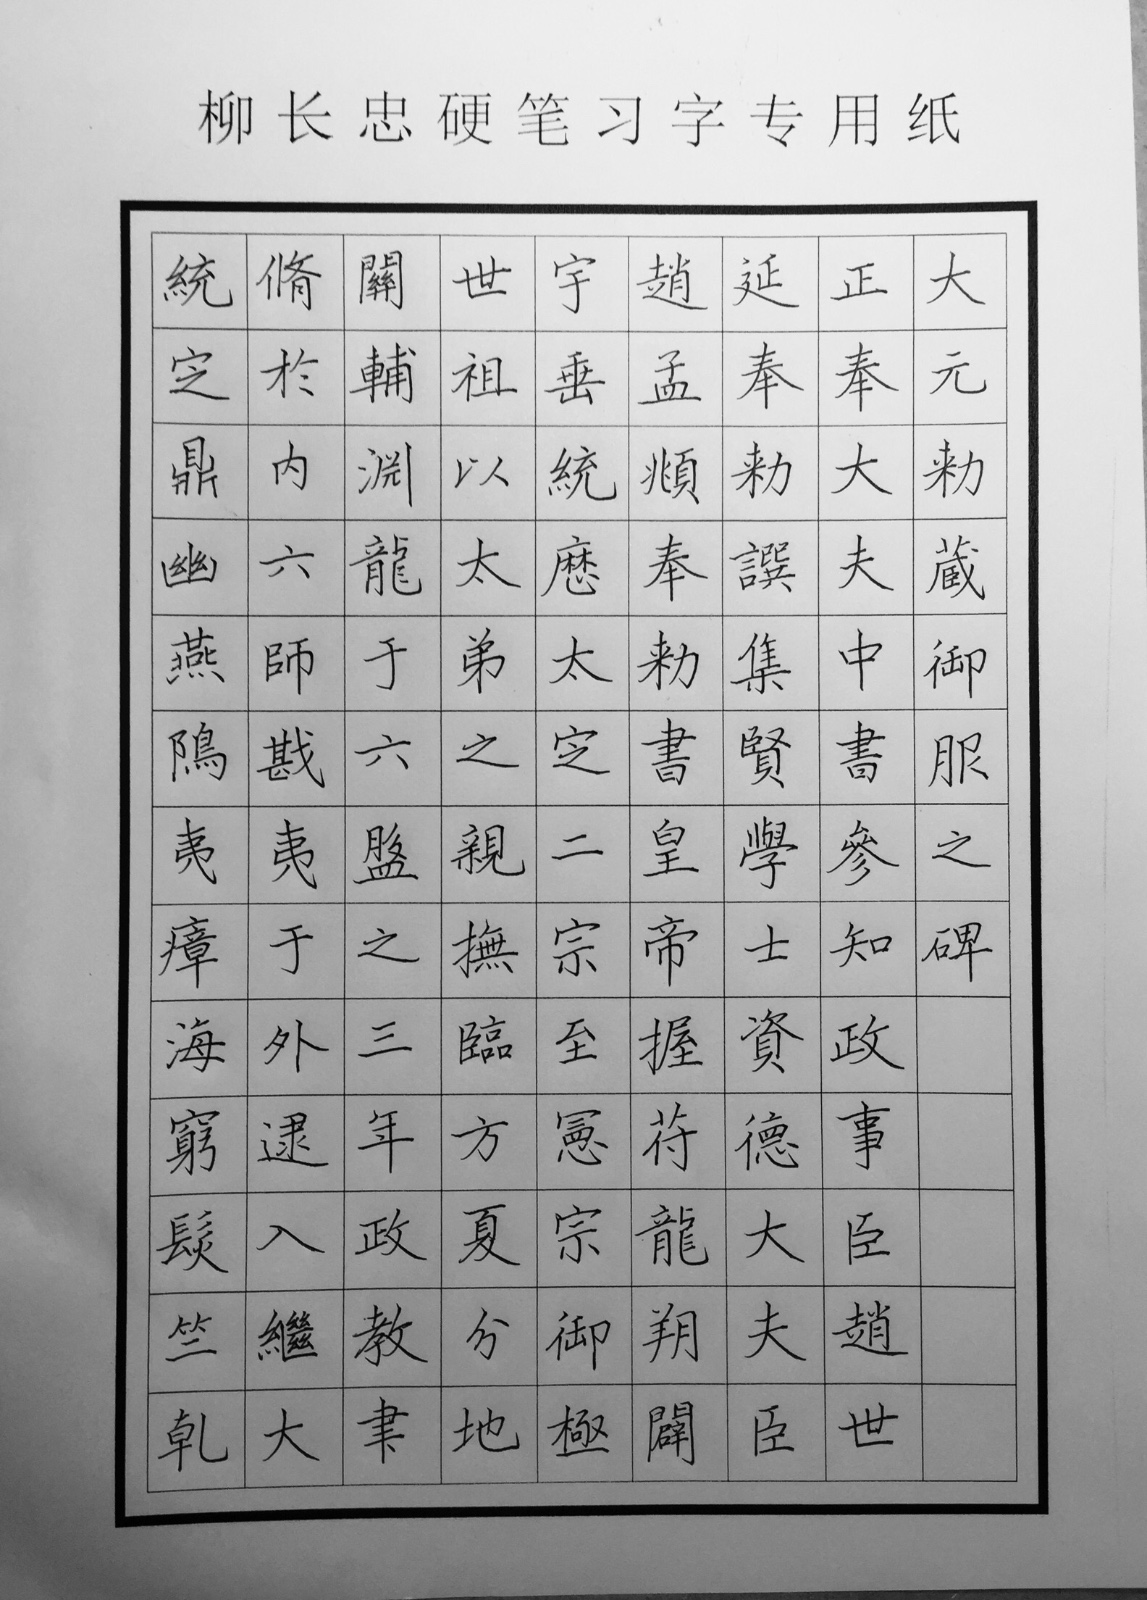 柳长忠硬笔习字专用纸
大元勑蔵御服之碑
正奉大夫中書參知政事臣趙世
延奉勑譔集賢學士資德大夫臣
趙孟頫奉勑書皇帝握苻龍翔闢
宇垂統厯太定二宗至憲宗御極
世祖以太弟之親撫臨方夏分地
關輔淵龍于六盤之三年政教聿
脩於内六師戡夷于外逮入繼大
統定鼎幽燕隝夷瘴海窮髮竺乹